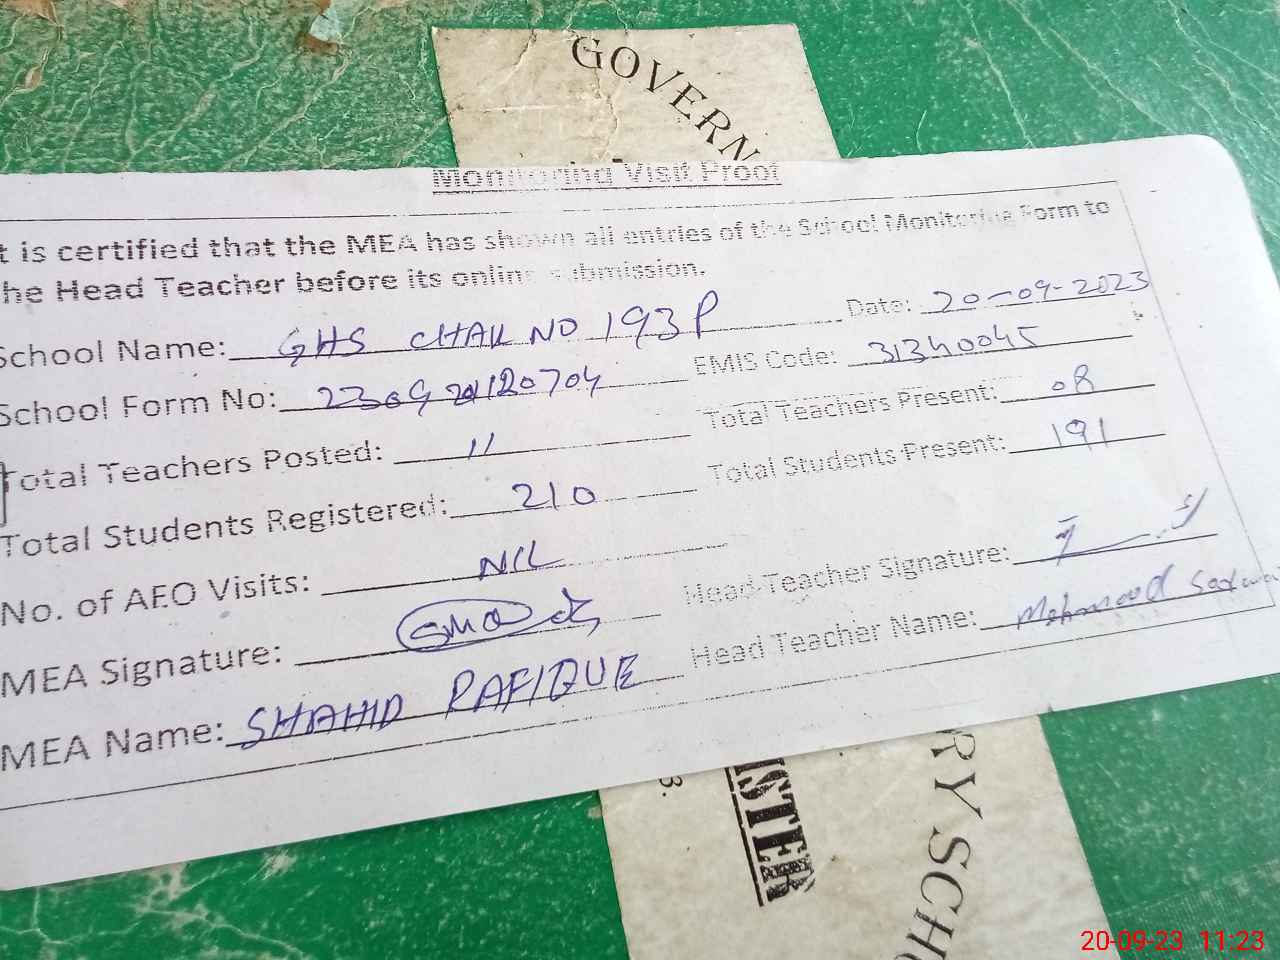 GOVERN
Monitoring Visit Proof
t is certified that the MEA has shown all entries of the School Monitoring Form to
he Head Teacher before its online submission.
School Name: GHS CHAK NO 193P Date: 20-09-2023
School Form No: EMIS Code: 31340045
Total Teachers Posted: 11 Total Teachers Present: 08
Total Students Registered: 210 Total Students Present: 191
No. of AEO Visits: NIL Head Teacher Signature:
MEA Signature: Head Teacher Name: Mehmood
MEA Name: SHAHID RAFIQUE
3.
ISTER
RY SCH
20-09-23 11:23